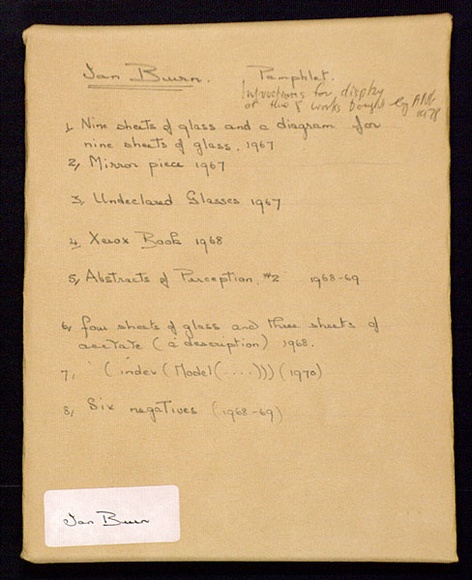 Ian Burn. Pamphlet.
Instructions for display
of the 8 works bought by ANG
1978
1, Nine sheets of glass and a diagram for
nine sheets of glass, 1967
2, Mirror piece 1967
3, Undeclared Glasses 1967
4, Xerox Book 1968
5, Abstracts of Perception, #2 1968-69
6, four sheets of glass and three sheets of
acetate (a description) 1968.
7, (index (Model (....))) (1970)
8, Six negatives (1968-69)
Ian Burn